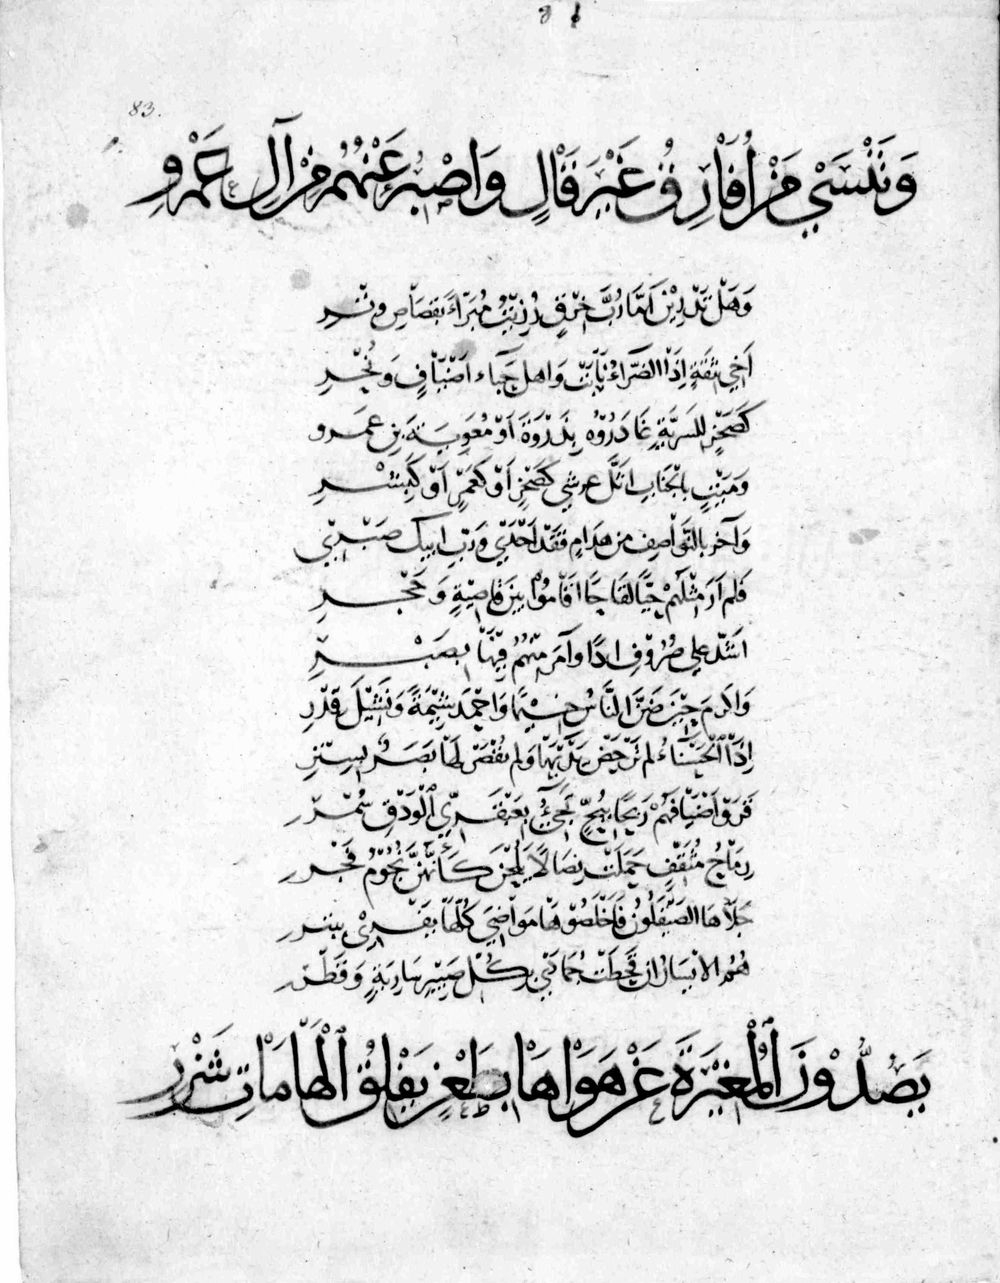 83.
وَنَنْسَيْ مَنْ اُفَارِقُ غَيْرَ قَالٍ وَاصْبِرُ عَنْهُمُ مِنْ آلِ عَمْرٍو
وَهَلْ تَدْرِيْنَ اَمَّا رُبَّ خِرْقٍ رُزِيْتُ مُبَرَّاءً بِقِصَاصِ وِتْرِ
اَخِي ثِقَةٍ اِذَا الضَّرَّاءُ نَابَتْ وَاهل حِبَاء اَضْيَافٍ وَنَحْرِ
كَصَخْرٍ للسَرِيَّةِ غَادَرُوْهُ بِذَرْوَةَ اَوْ مُعَوِيَةَ بنِ عَمرو
وَمَيْتٍ بالجَنَابِ اثَلَّ عرشي كَصَخْرٍ اَوْ كَعَمْرٍ اَوْ كَبِشْرِ
وَآخر بِالنَّوَاصِفِ من هدامٍ فَقَدْ اَوْدَيْ وَرَبِّ ابيك صَبْرِيْ
فَلم اَرَ مِثْلَهُمْ حَيًّا لَقَاحًا اَقَامُوْا بين قَاصِيَةٍ وَحَجْرِ
اَشَدَّ علي صُرُوْفِ ادًا وآمَر مِنْهُمُ فِيْهَا بصَبْرِ
وَاكرمَ حِيْنَ ضَنَّ النَّاسُ خِيْمًا وَاَحْمَدَ شِيْمَةً وَنَشِيْلَ قِدْرِ
اِذَا الْحَسْنَاءُ لم تَرْحَضْ يَدَيْهَا وَلم يُقْصَرْ لَهَا بَصَرٌ بسِتْرِ
قَرَوْا اَضْيَافَهُمْ رَبَحًا بِبُحٍّ تَجِيْءُ بِعَبْقَرِيِّ الْوَدْقِ سُمْرِ
رِمَاحُ مُثَقِّفٍ حَمَلَتْ نِصَالًا يَلُحْنَ كَاَنَّهُنَّ نُجُوْمُ فَجْرِ
جَلَاهَا الصَّيْقَلُوْنَ فَاَخْلَصُوْهَا مَوَاضِيَ كُلُّهَا يَفْرِيْ بِبَتْرِ
هُمُ الايْسَارُ ان قَحَطَتْ جُمَادَي بِكُلِّ صَبِيْرِ سَارِيَةٍ وَقَطْرِ
يَصُدُّوْنَ الْمُغِيْرَةَ عَنْ هَوَاهَا بِطَعْنٍ يَفْلِقُ الْهَامَاتِ شَزْرِ